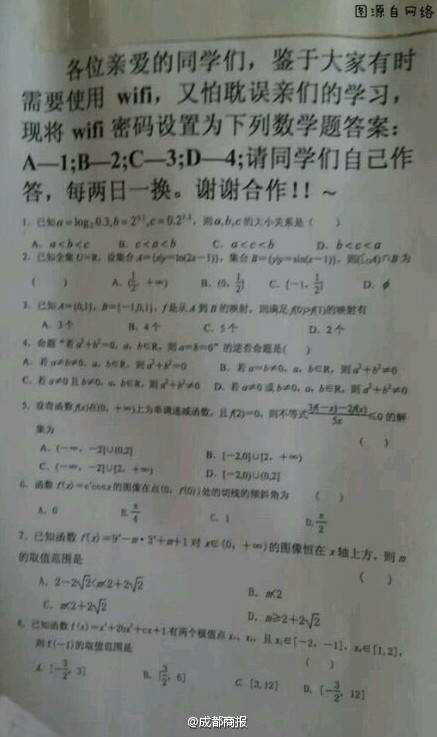 图源自网络
各位亲爱的同学们，鉴于大家有时
需要使用 wifi，又怕耽误亲们的学习，
现将 wifi 密码设置为下列数学题答案：
A—1;B—2;C—3;D—4;请同学们自己作
答，每两日一换。谢谢合作!! ~
1. 已知a=log₂0.3,b=2^0.1,c=0.2^1.3，则a,b,c的大小关系是（ ）
A. a<b<c B. c<a<b C. a<c<b D. b<c<a
2. 已知全集U=R，设集合A={x|y=ln(2x-1)}，集合B={y|y=sin(x-1)}，则(∁ᵤA)∩B为
（ ） A. (1/2, +∞) B. (0, 1/2] C. [-1, 1/2] D. ϕ
3. 已知A={0,1}，B={-1,0,1}，f是从A到B的映射，则满足f(0)>f(1)的映射有
A. 3个 B. 4个 C. 5个 D. 2个
4. 命题“若a²+b²=0，a，b∈R，则a=b=0”的逆否命题是( )
A. 若a≠b≠0，a，b∈R，则a²+b²=0 B. 若a=b≠0，a，b∈R，则a²+b²≠0
C. 若a≠0且b≠0，a，b∈R，则a²+b²≠0 D. 若a≠0或b≠0，a，b∈R，则a²+b²≠0
5. 设奇函数f(x)在(0，+∞)上为单调递减函数，且f(2)=0，则不等式 3f(-x)-2f(x)/5x ≤0 的解
集为 （ ）
A. (-∞，-2]∪(0,2] B. [-2,0]∪[2，+∞)
C. (-∞，-2]∪[2，+∞) D. [-2,0)∪(0,2]
6. 函数f(x)=eˣcosx的图像在点(0，f(0))处的切线的倾斜角为 （ ）
A. 0 B. π/4 C. 1 D. π/2
7. 已知函数 f(x)=9ˣ-m·3ˣ+m+1 对 x∈(0，+∞)的图像恒在 x 轴上方，则 m
的取值范围是 （ ）
A. 2-2√2<m<2+2√2 B. m<2
C. m<2+2√2 D. m≥2+2√2
8. 已知函数f(x)=x³+2bx²+cx+1有两个极值点x₁、x₂，且x₁∈[-2，-1]，x₂∈[1,2]，
则f(-1)的取值范围是 （ ）
A. [-3/2, 3] B. [3/2, 6] C. [3,12] D. [-3/2, 12]
@成都商报